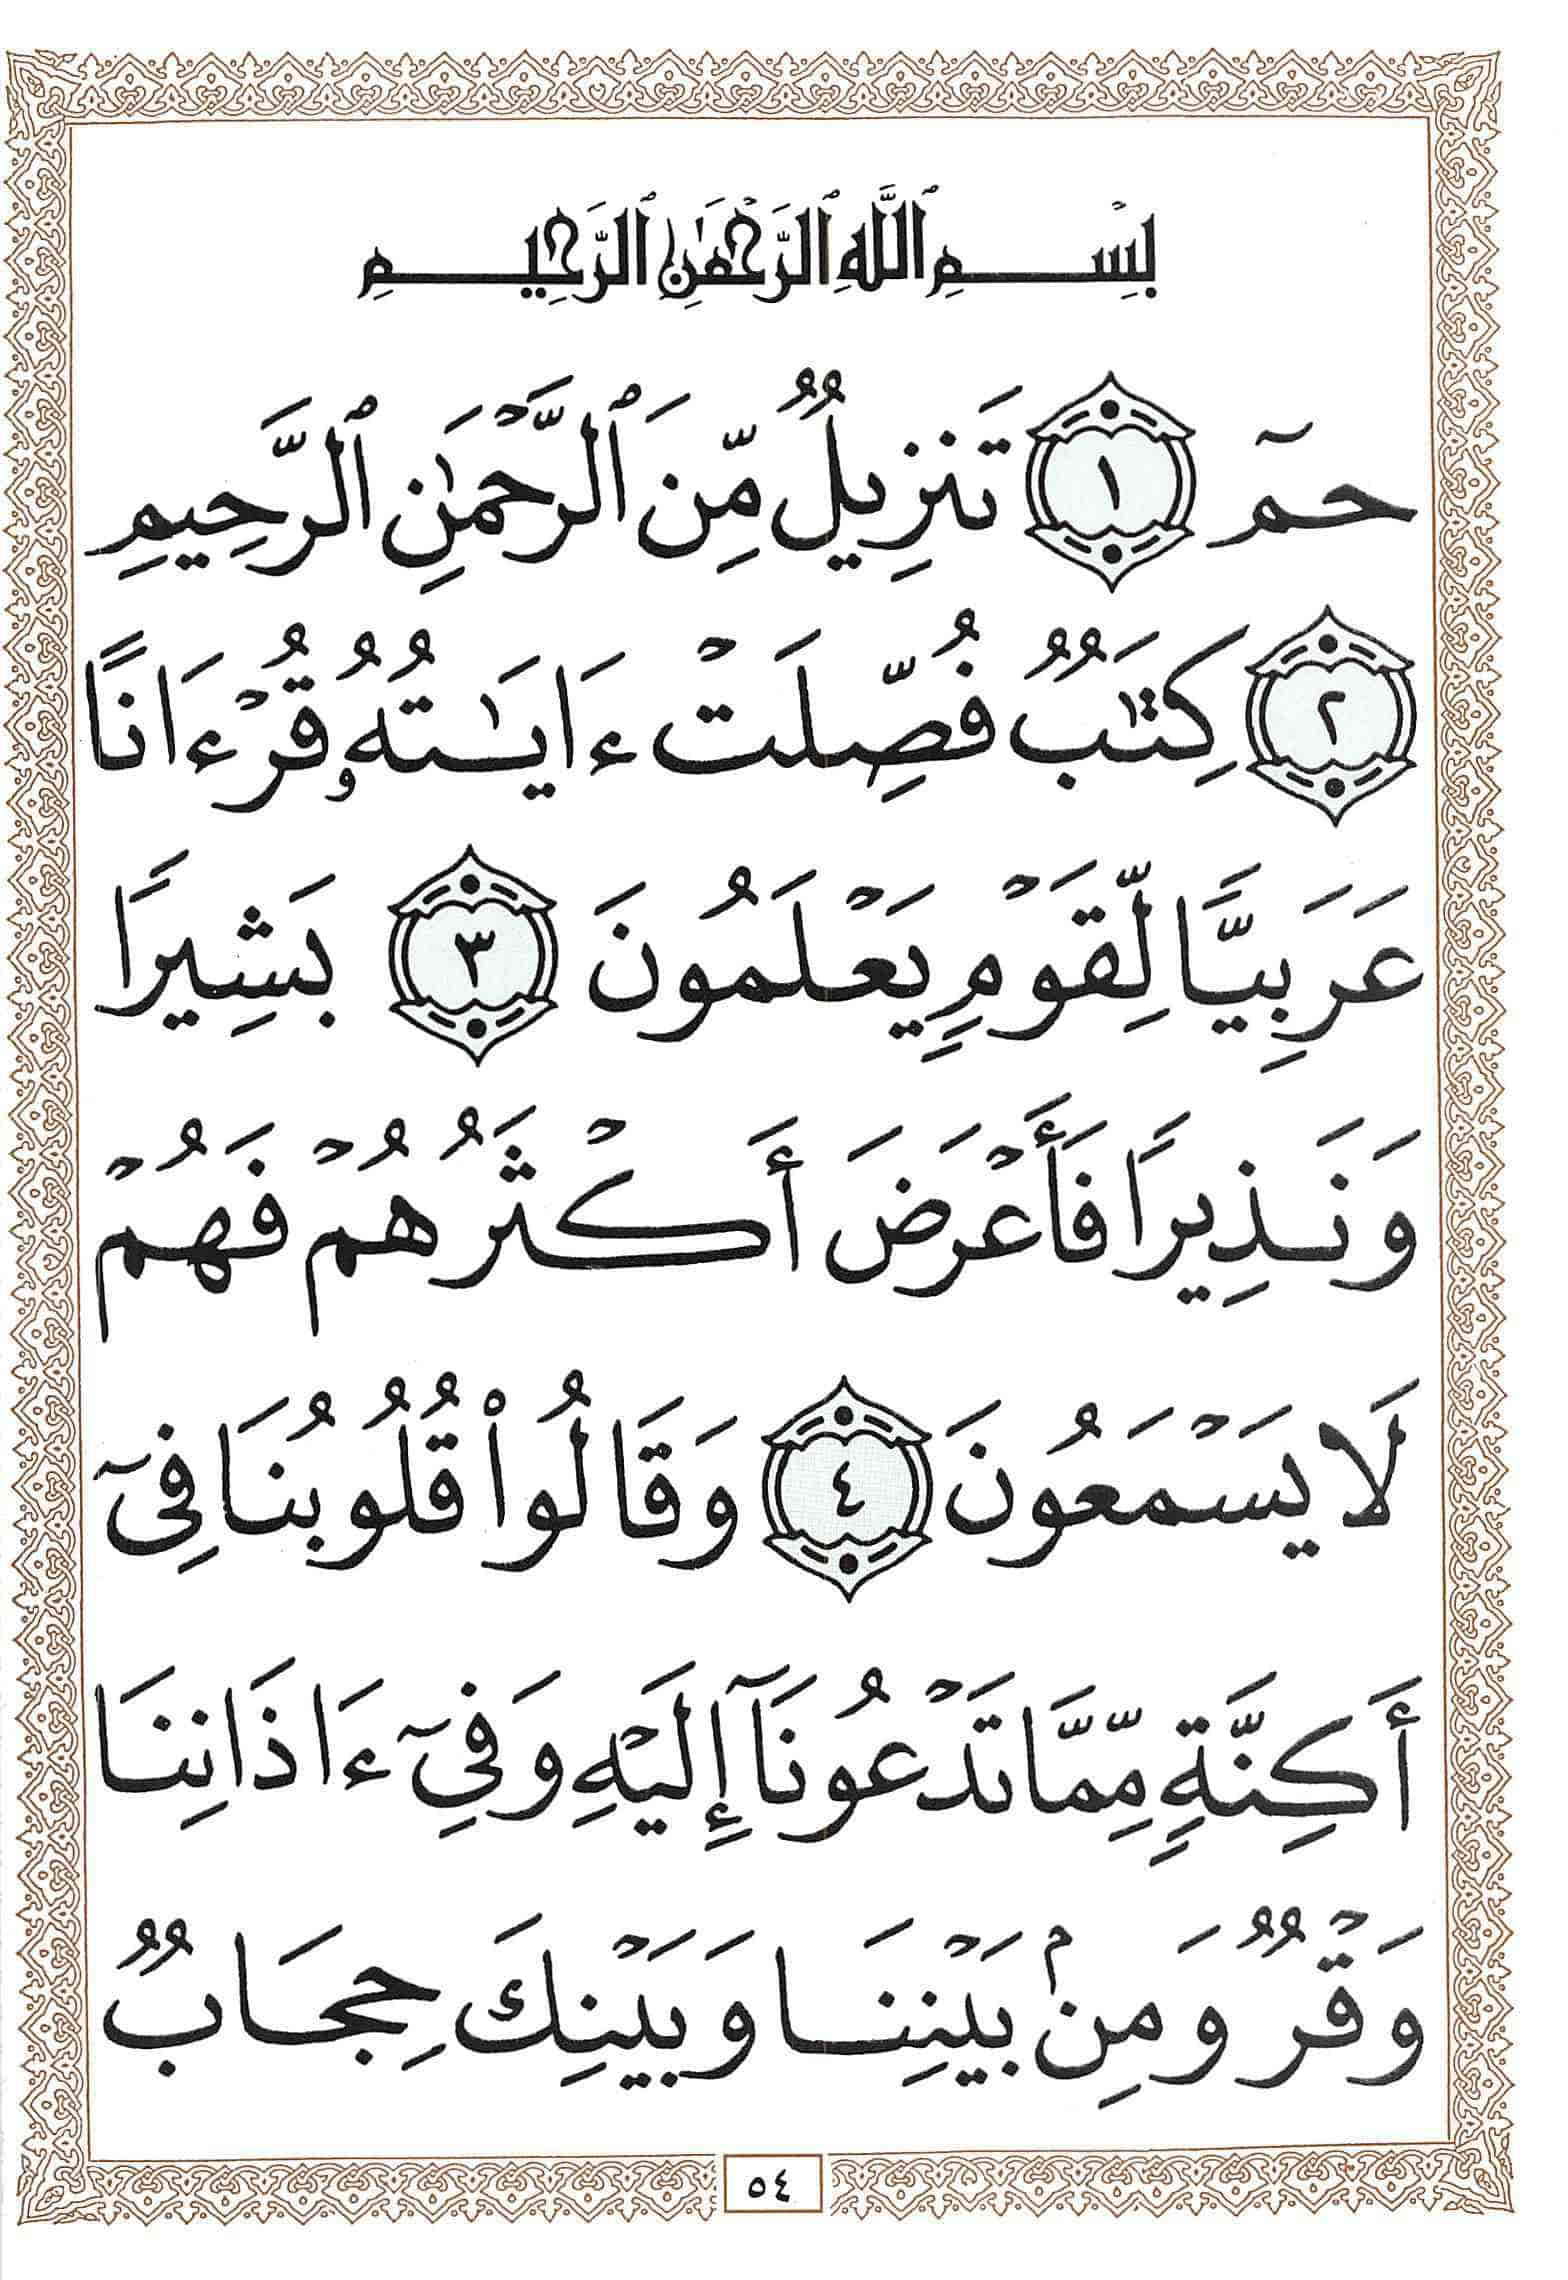 بِسْمِ ٱللَّهِ ٱلرَّحْمَٰنِ ٱلرَّحِيمِ
حمٓ ١ تَنزِيلٌ مِّنَ ٱلرَّحْمَٰنِ ٱلرَّحِيمِ
٢ كِتَٰبٌ فُصِّلَتْ ءَايَٰتُهُۥ قُرْءَانًا
عَرَبِيًّا لِّقَوْمٍ يَعْلَمُونَ ٣ بَشِيرًا
وَنَذِيرًا فَأَعْرَضَ أَكْثَرُهُمْ فَهُمْ
لَا يَسْمَعُونَ ٤ وَقَالُوا۟ قُلُوبُنَا فِىٓ
أَكِنَّةٍ مِّمَّا تَدْعُونَآ إِلَيْهِ وَفِىٓ ءَاذَانِنَا
وَقْرٌ وَمِنۢ بَيْنِنَا وَبَيْنِكَ حِجَابٌ
٥٤